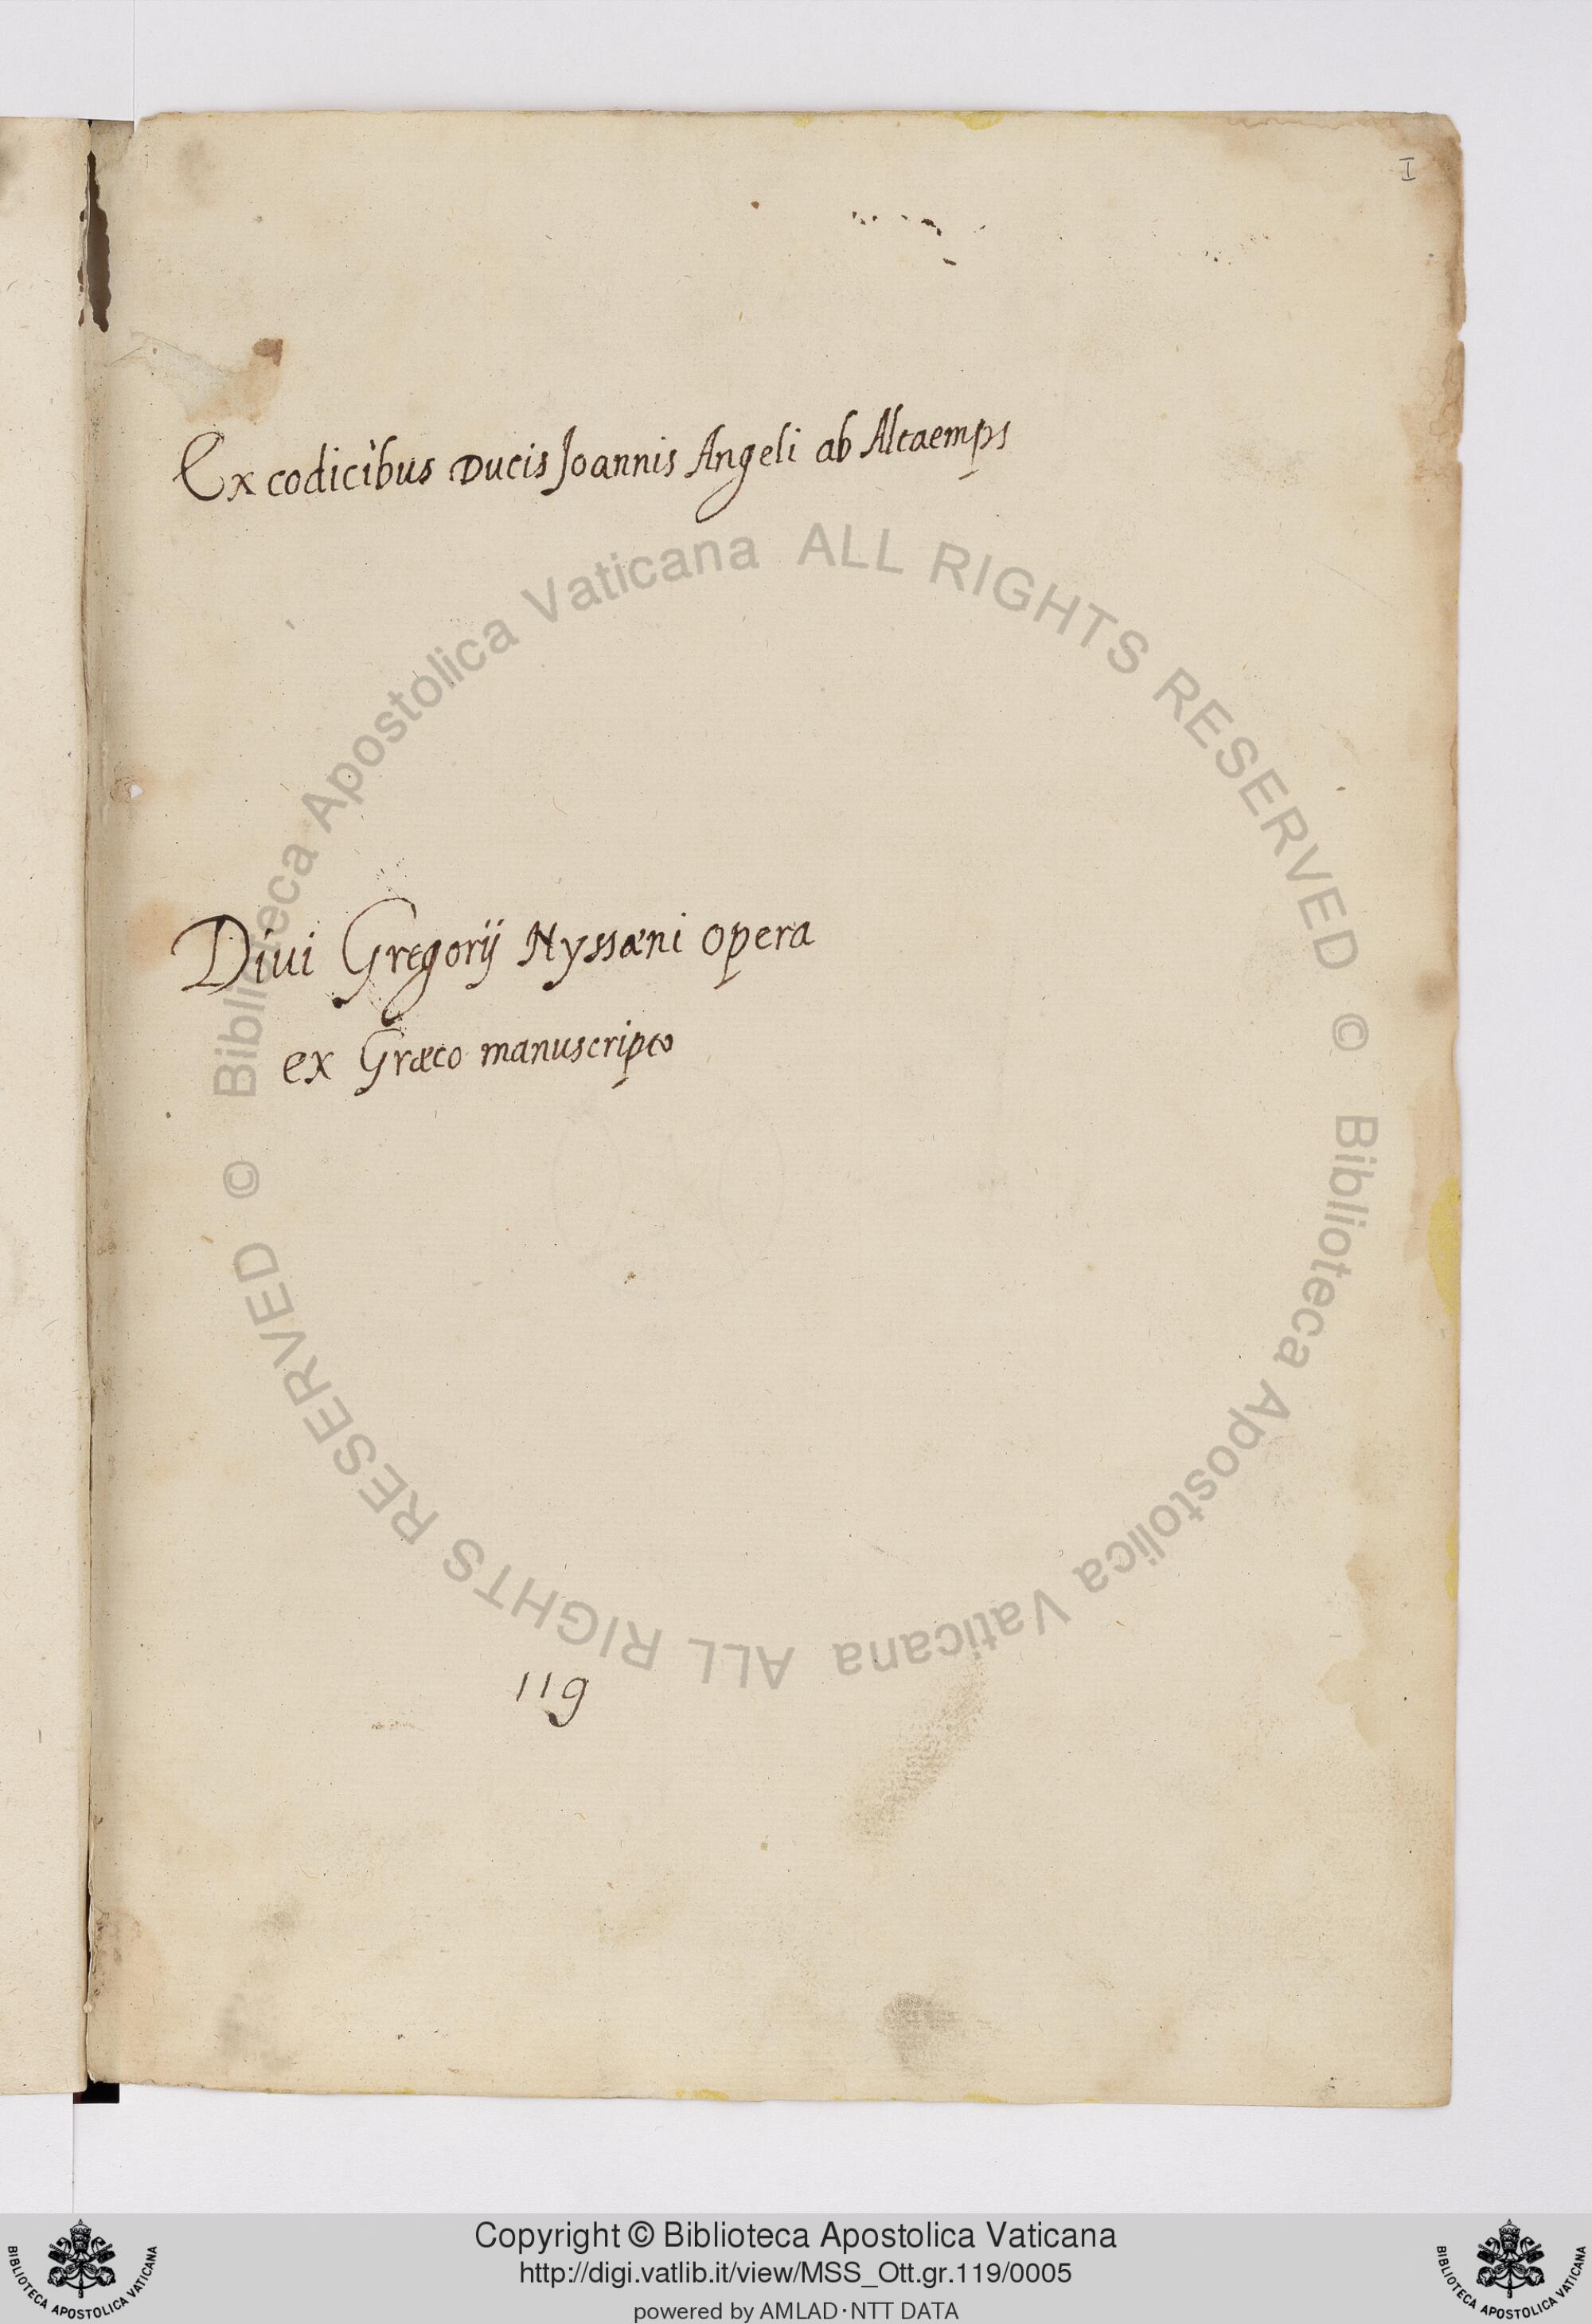 I
Ex codicibus Ducis Joannis Angeli ab Altaemps
Diui Gregorij Nyssæni opera
ex Græco manuscripto
119
© Biblioteca Apostolica Vaticana ALL RIGHTS RESERVED
© Biblioteca Apostolica Vaticana ALL RIGHTS RESERVED
Copyright © Biblioteca Apostolica Vaticana
http://digi.vatlib.it/view/MSS_Ott.gr.119/0005
powered by AMLAD·NTT DATA
BIBLIOTECA APOSTOLICA VATICANA
BIBLIOTECA APOSTOLICA VATICANA